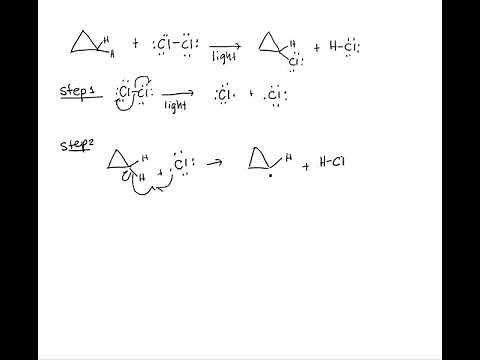 H
H + :Cl-Cl: light → H Cl: + H-Cl:
Step 1 :Cl-Cl: light → :Cl· + ·Cl:
Step2 H H + ·Cl: → · H + H-Cl